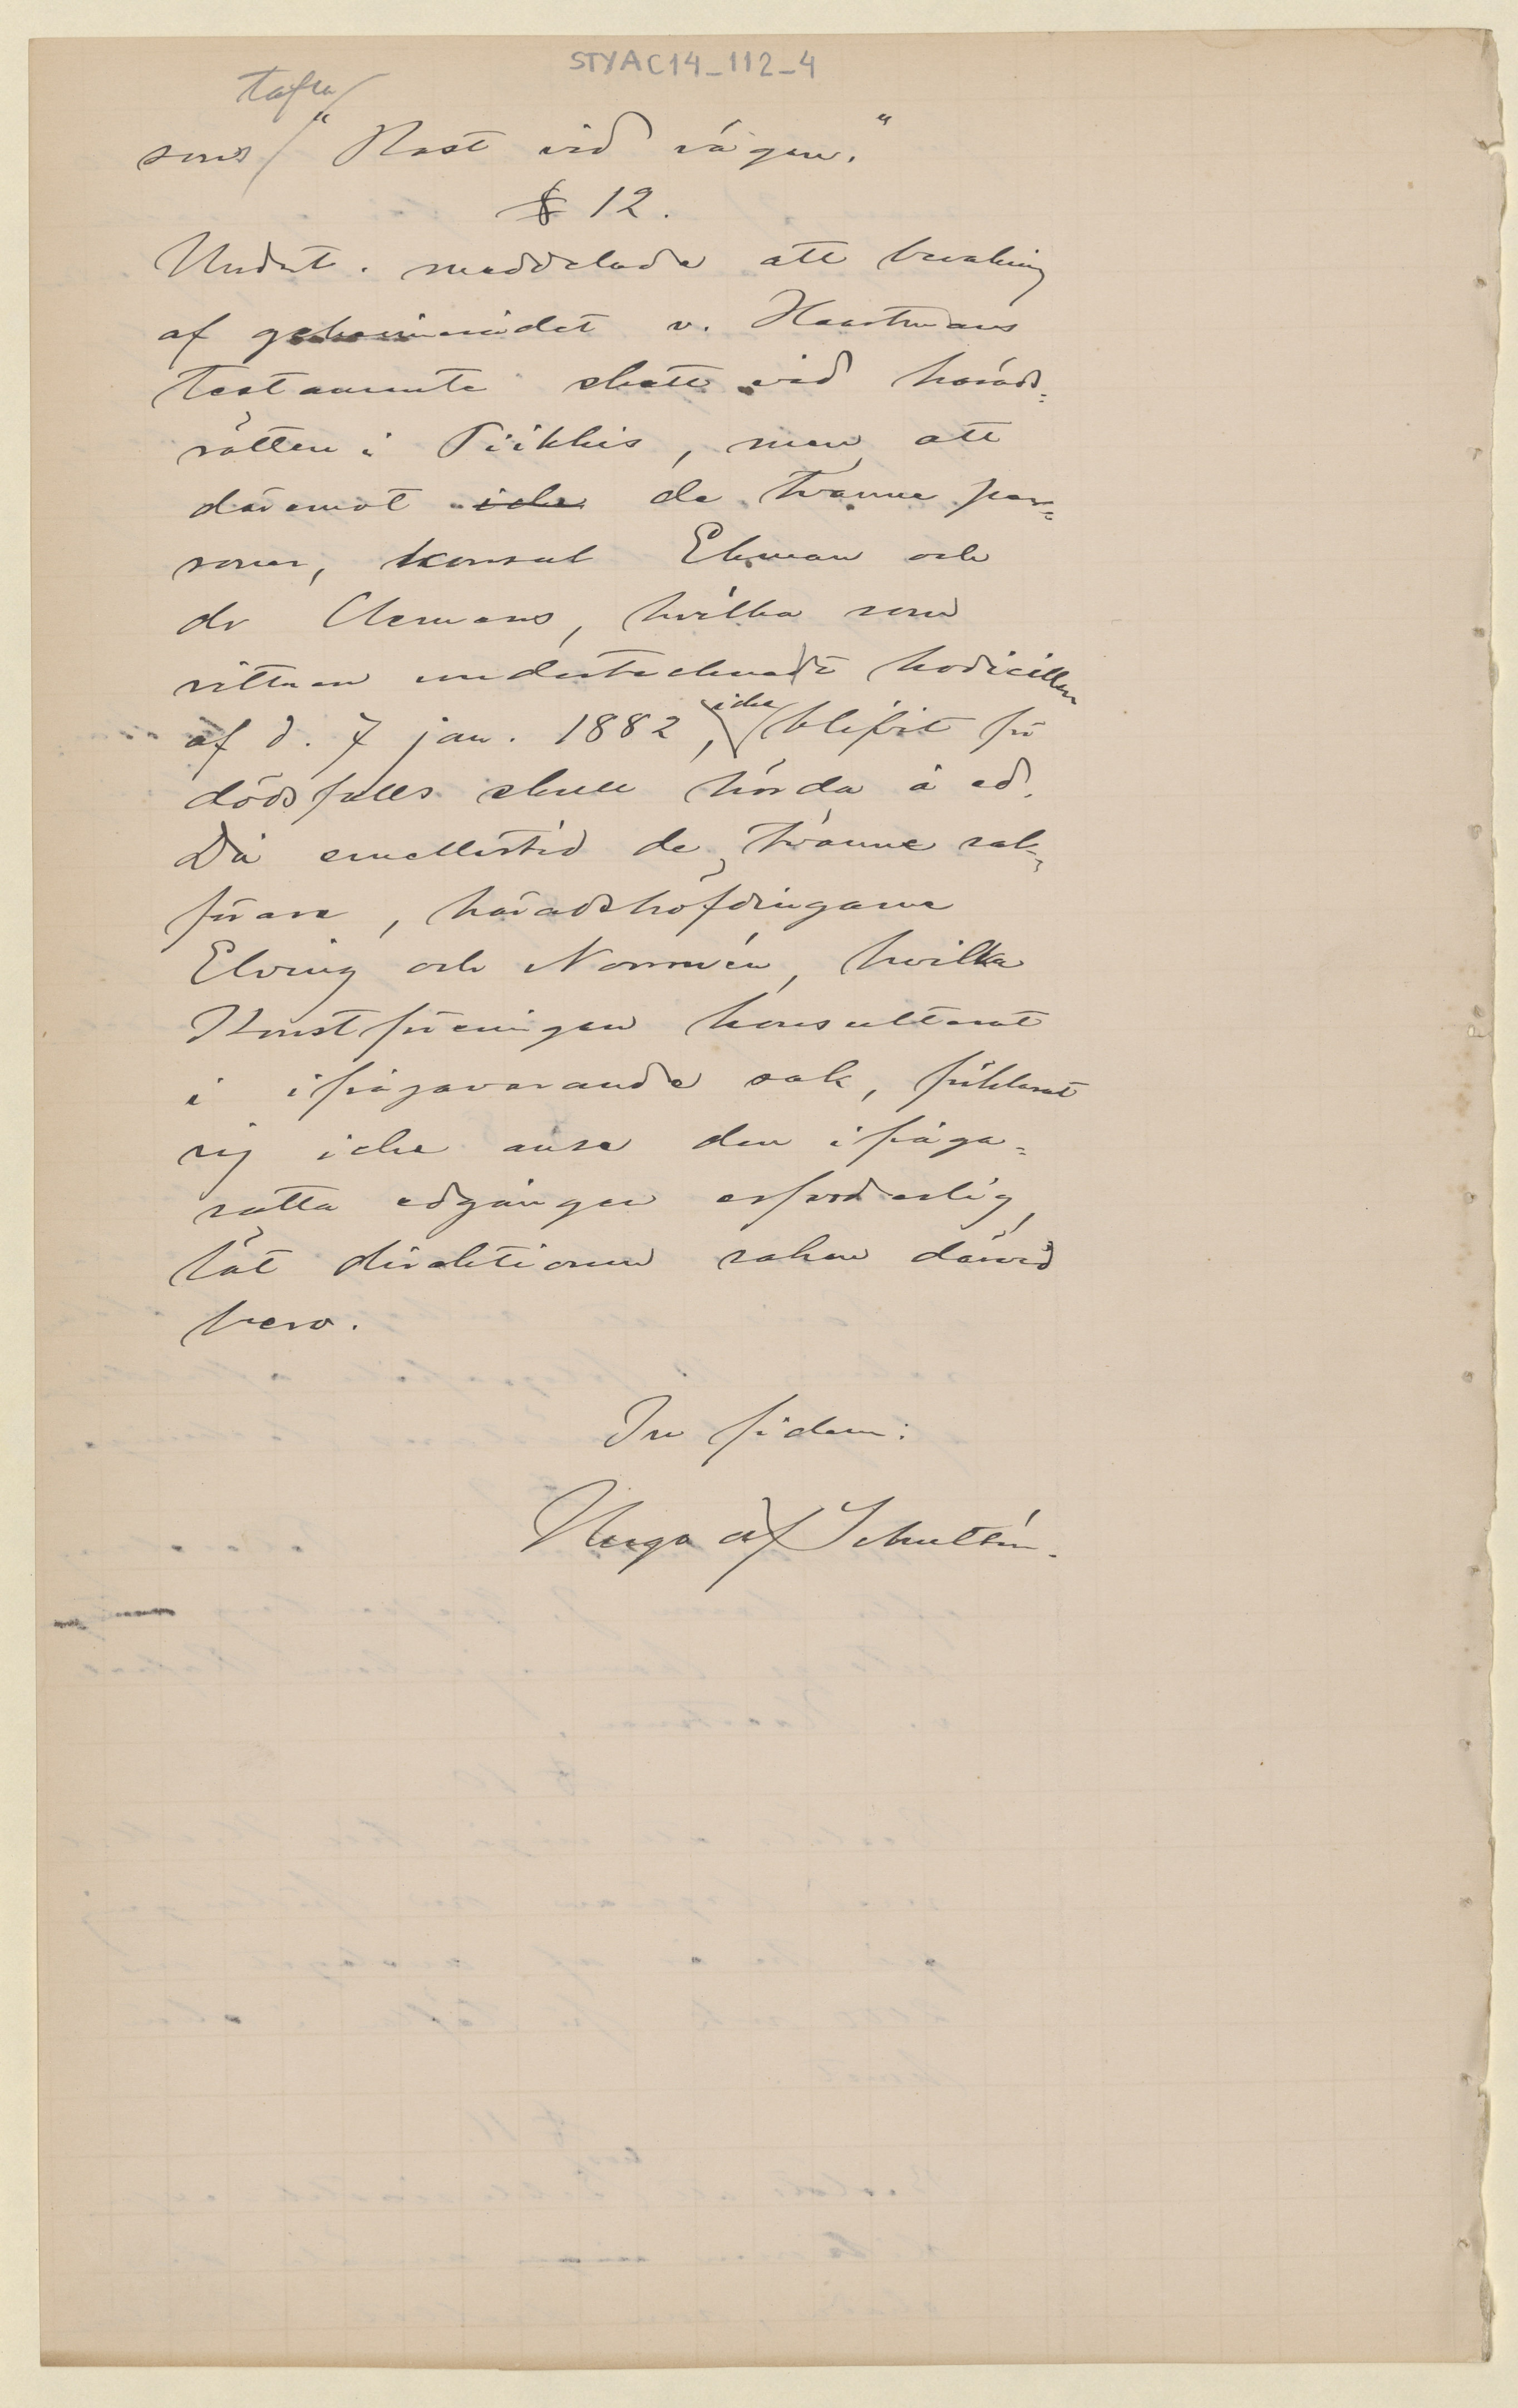 STYAC14_112-4
tafla
sons "Rast vid vägen."
§ 12.
Undert. meddelade att bevakning
af geheimerådet v. Haartmans
testamente skett vid härads-
rätten i Piikkis, men att
däremot icke de tvänne per-
soner, konsul Ekman och
dr Clemens, hvilka som
vittnen undertecknadt kodicillen
af d. 7 jan. 1882, icke blifvit för
dödsfalls skull hörda å ed.
Då emellertid de tvänne sak-
förare, häradshöfdingarne
Elving och Norrmén, hvilka
Konstföreningen konsulterat
i ifrågavarande sak, förklarat
sig icke anse den ifråga-
satta edgången erforderlig,
lät direktionen saken därvid
bero.
In fidem:
Hugo af Schultén.